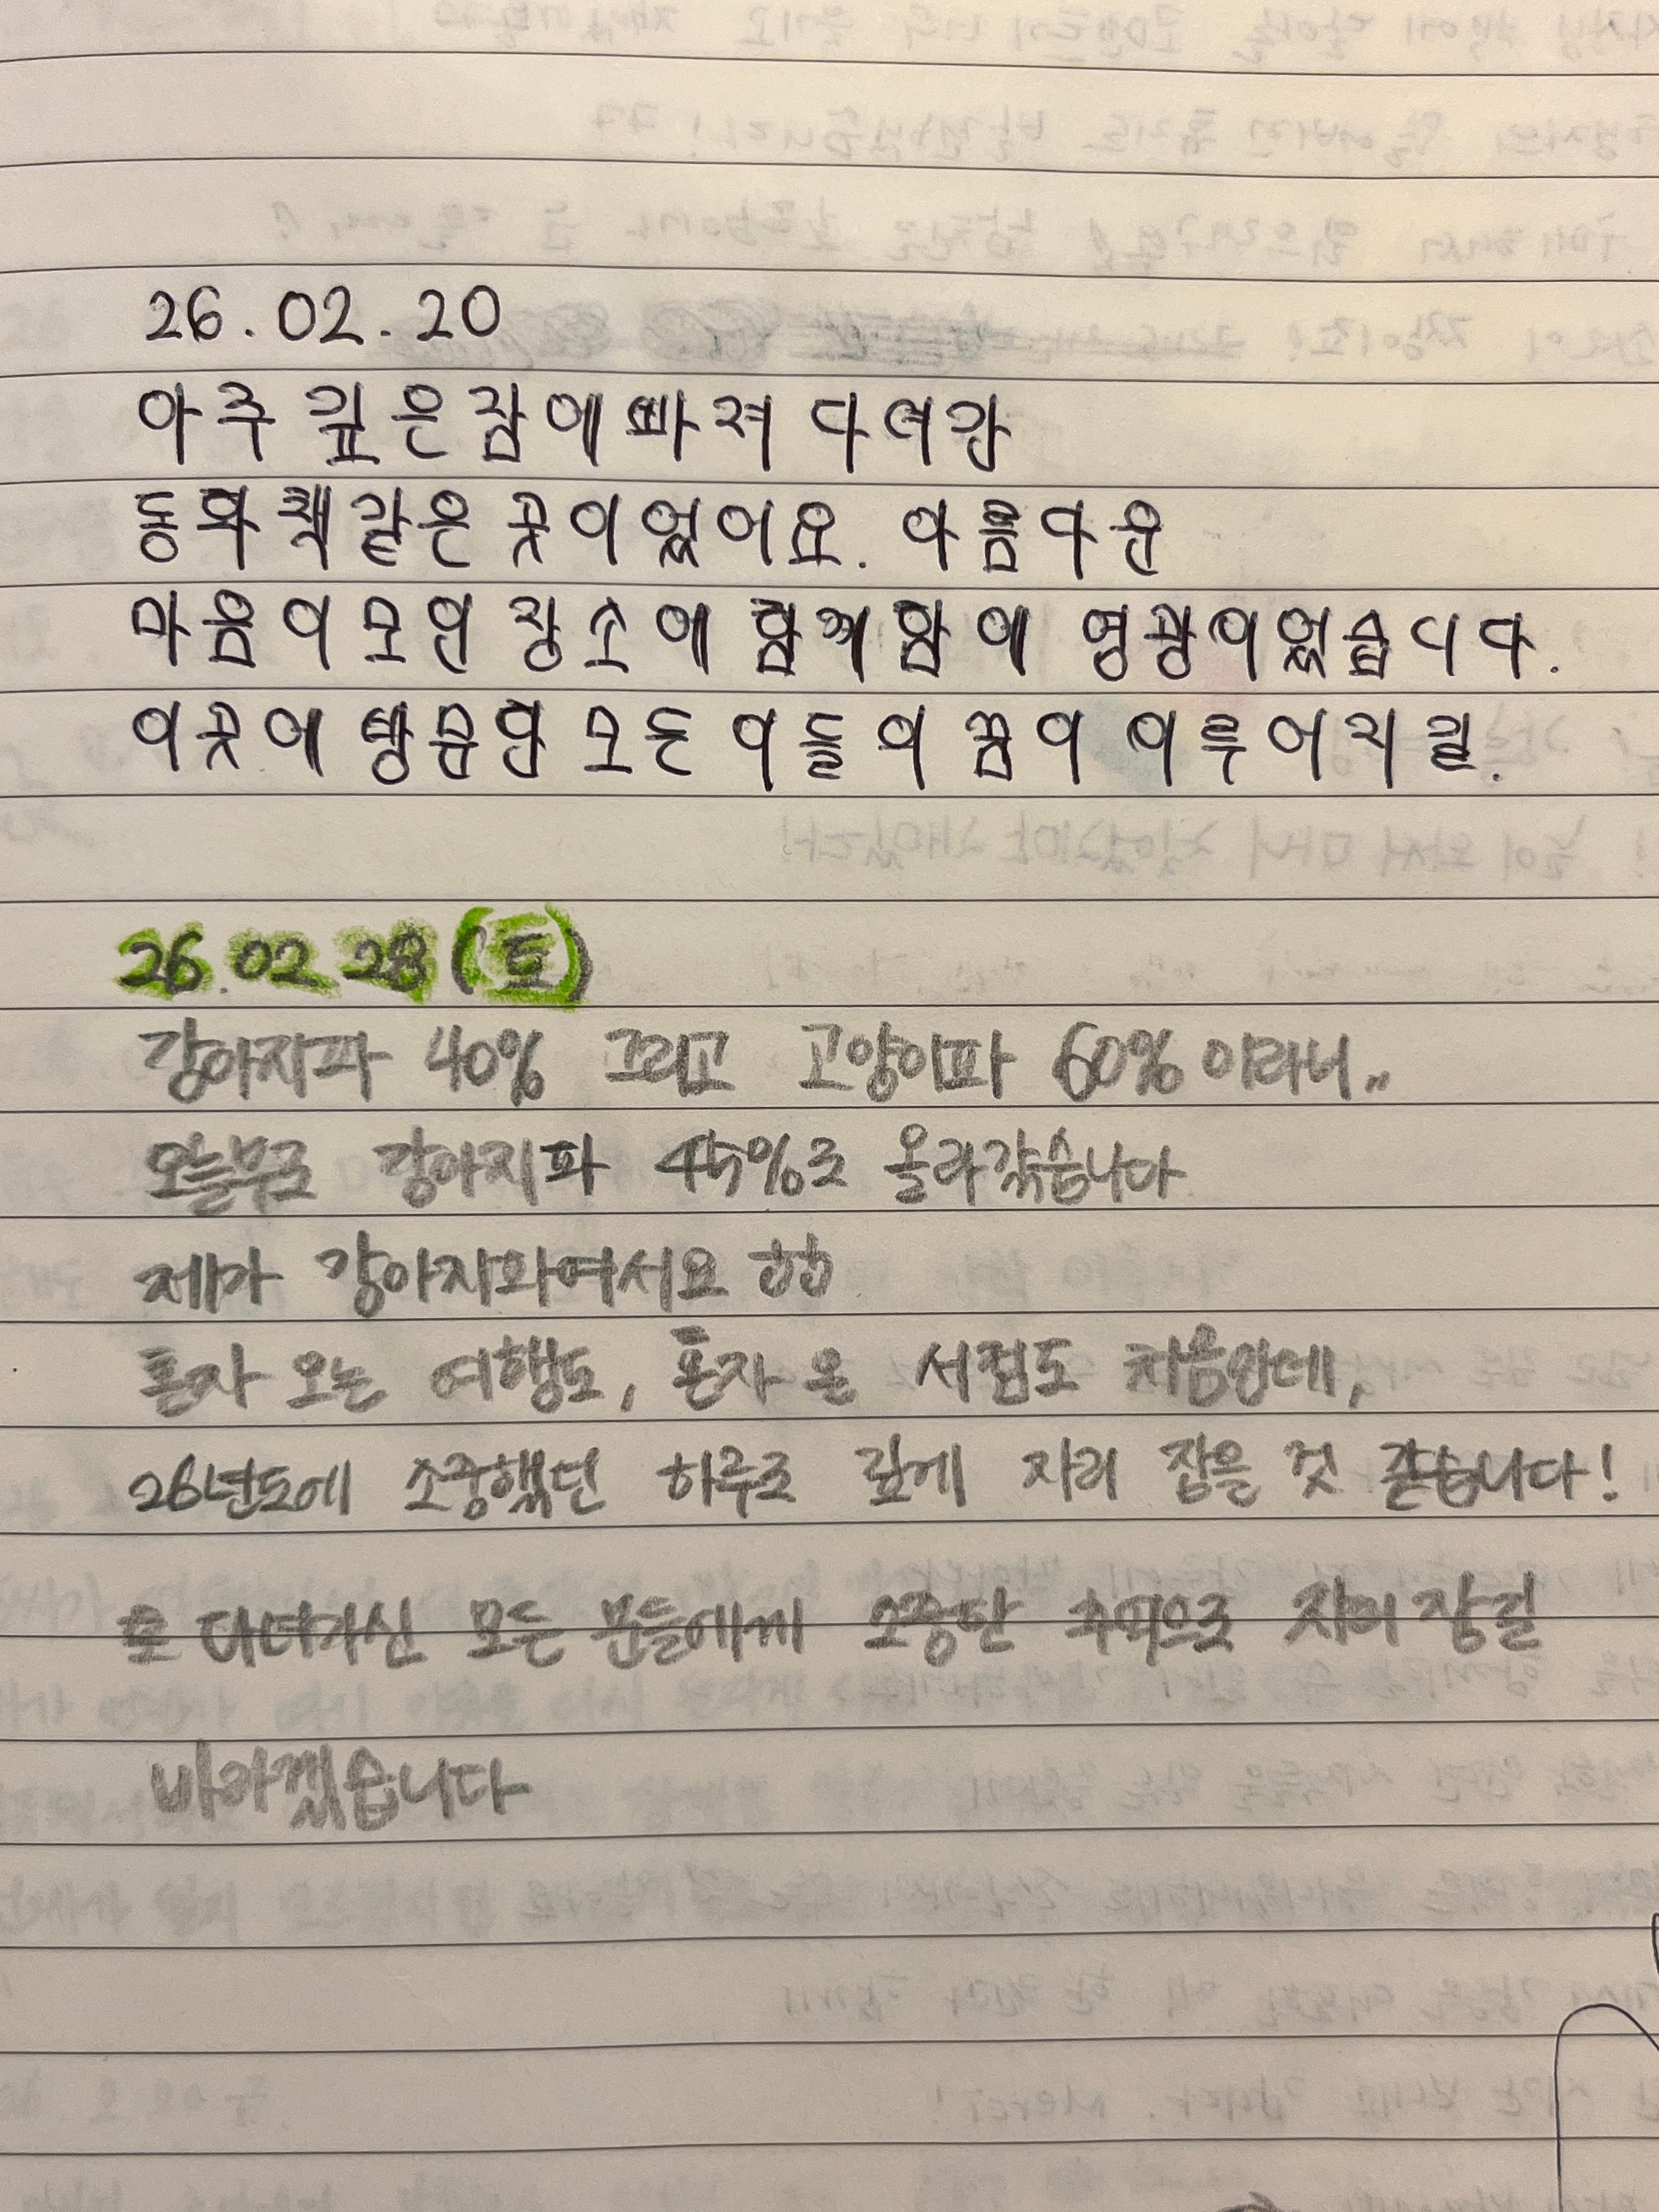 26.02.20
아주 깊은 잠에 빠져 다녀감
동화책같은 곳이었어요. 아름다운
마음이 모인 장소에 함께함에 영광이었습니다.
이곳에 방문한 모든 이들의 꿈이 이루어지길.
26.02 28 (토)
강아지파 40% 그리고 고양이파 60% 이라니..
오늘부로 강아지파 45%로 올라갔습니다
제가 강아지파여서요 ㅎㅎ
혼자 오는 여행도, 혼자 온 서점도 처음인데,
26년도에 소중했던 하루로 깊게 자리 잡을 것 같습니다!
다녀가신 모든 분들에게 소중한 추억으로 자리 잡길
바라겠습니다